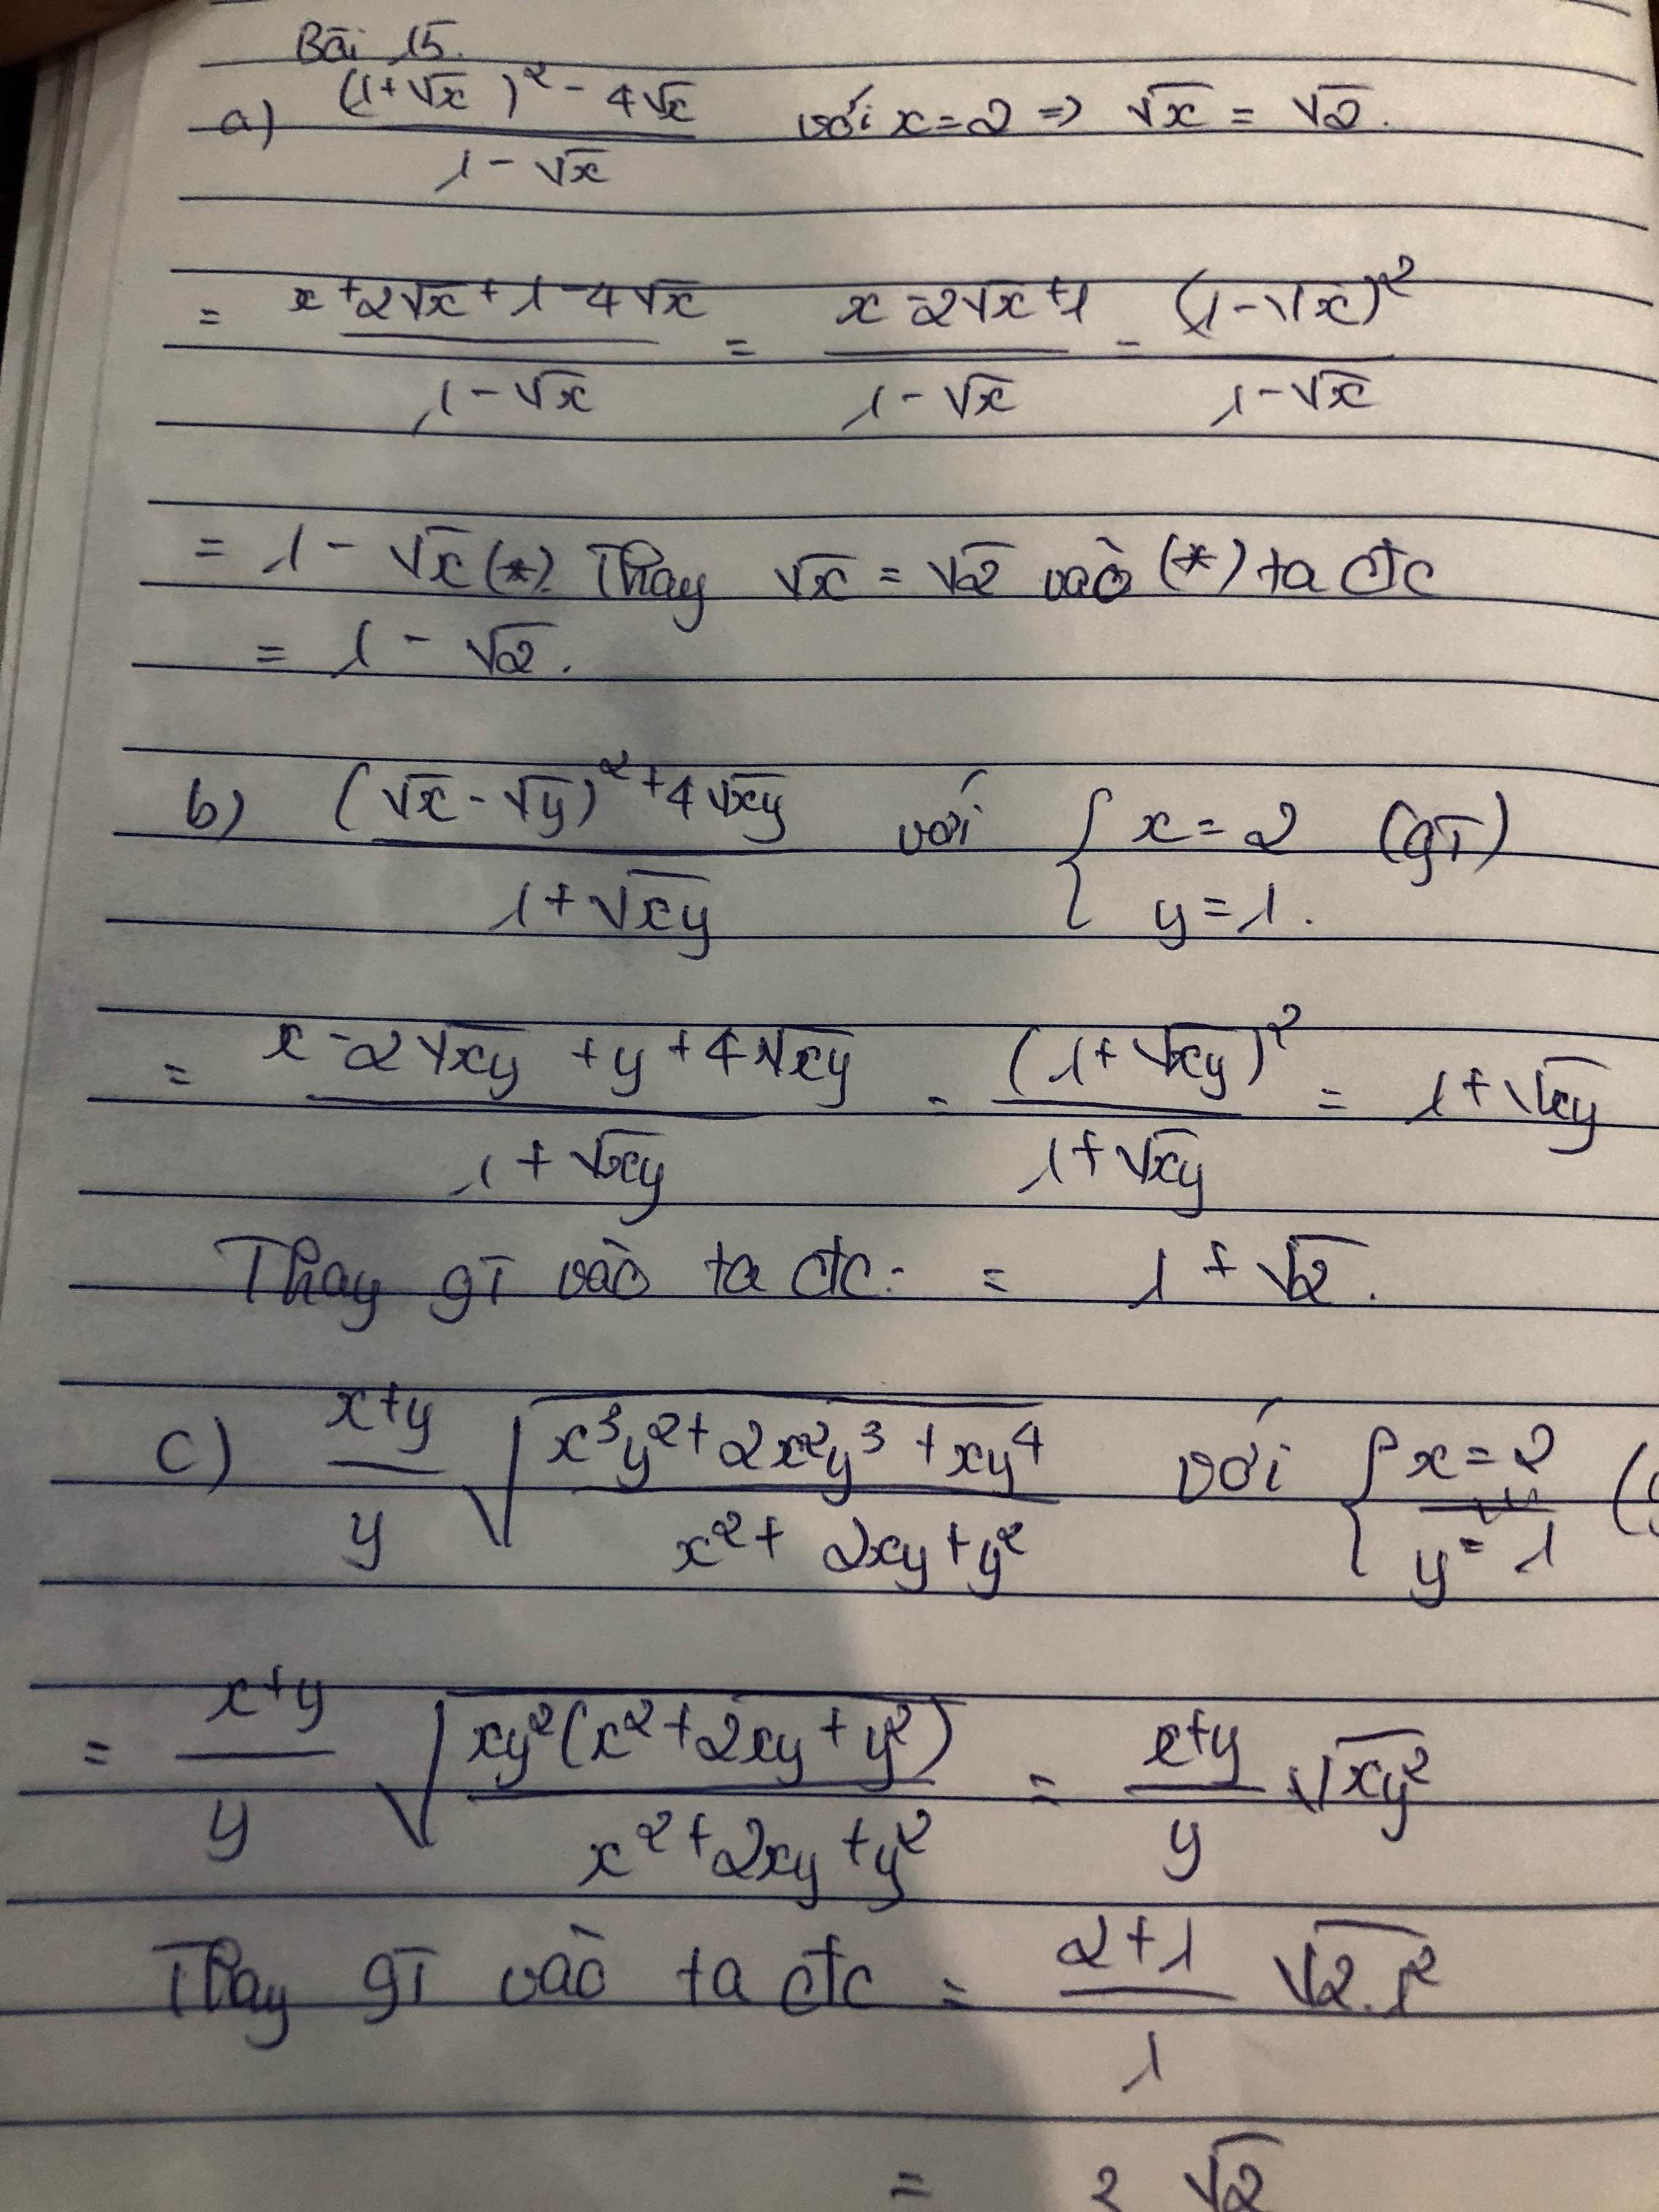 Bài 15.
a) ((1+√x)² - 4√x)/(1-√x) với x=2 => √x = √2.
= (x+2√x+1-4√x)/(1-√x) = (x-2√x+1)/(1-√x) = (1-√x)²/(1-√x)
= 1-√x (*). Thay √x = √2 vào (*) ta đc
= 1-√2.
b) ((√x-√y)²+4√xy)/(1+√xy) với { x=2 y=1. (gt)
= (x-2√xy+y+4√xy)/(1+√xy) = (1+√xy)²/(1+√xy) = 1+√xy
Thay gt vào ta đc: = 1+√2.
c) (x+y)/y √((x³y²+2x²y³+xy⁴)/(x²+2xy+y²)) với { x=2 y=1 (
= (x+y)/y √(xy²(x²+2xy+y²)/(x²+2xy+y²)) = (x+y)/y √xy²
Thay gt vào ta đc = (2+1)/1 √2.1²
= √2